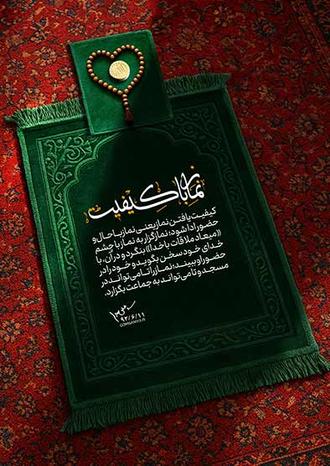 نماز با کیفیت
کیفیت یافتن نماز یعنی نماز با حال و
حضور ادا شود؛ نمازگزار به نماز با چشم
«میعاد ملاقات با خدا» بنگرد و در آن، با
خدای خود سخن بگوید و خود را در
حضور او ببیند؛ نماز را تا می‌تواند در
مسجد و تا می‌تواند به جماعت بگزارد.
۹۳/۶/۱۱